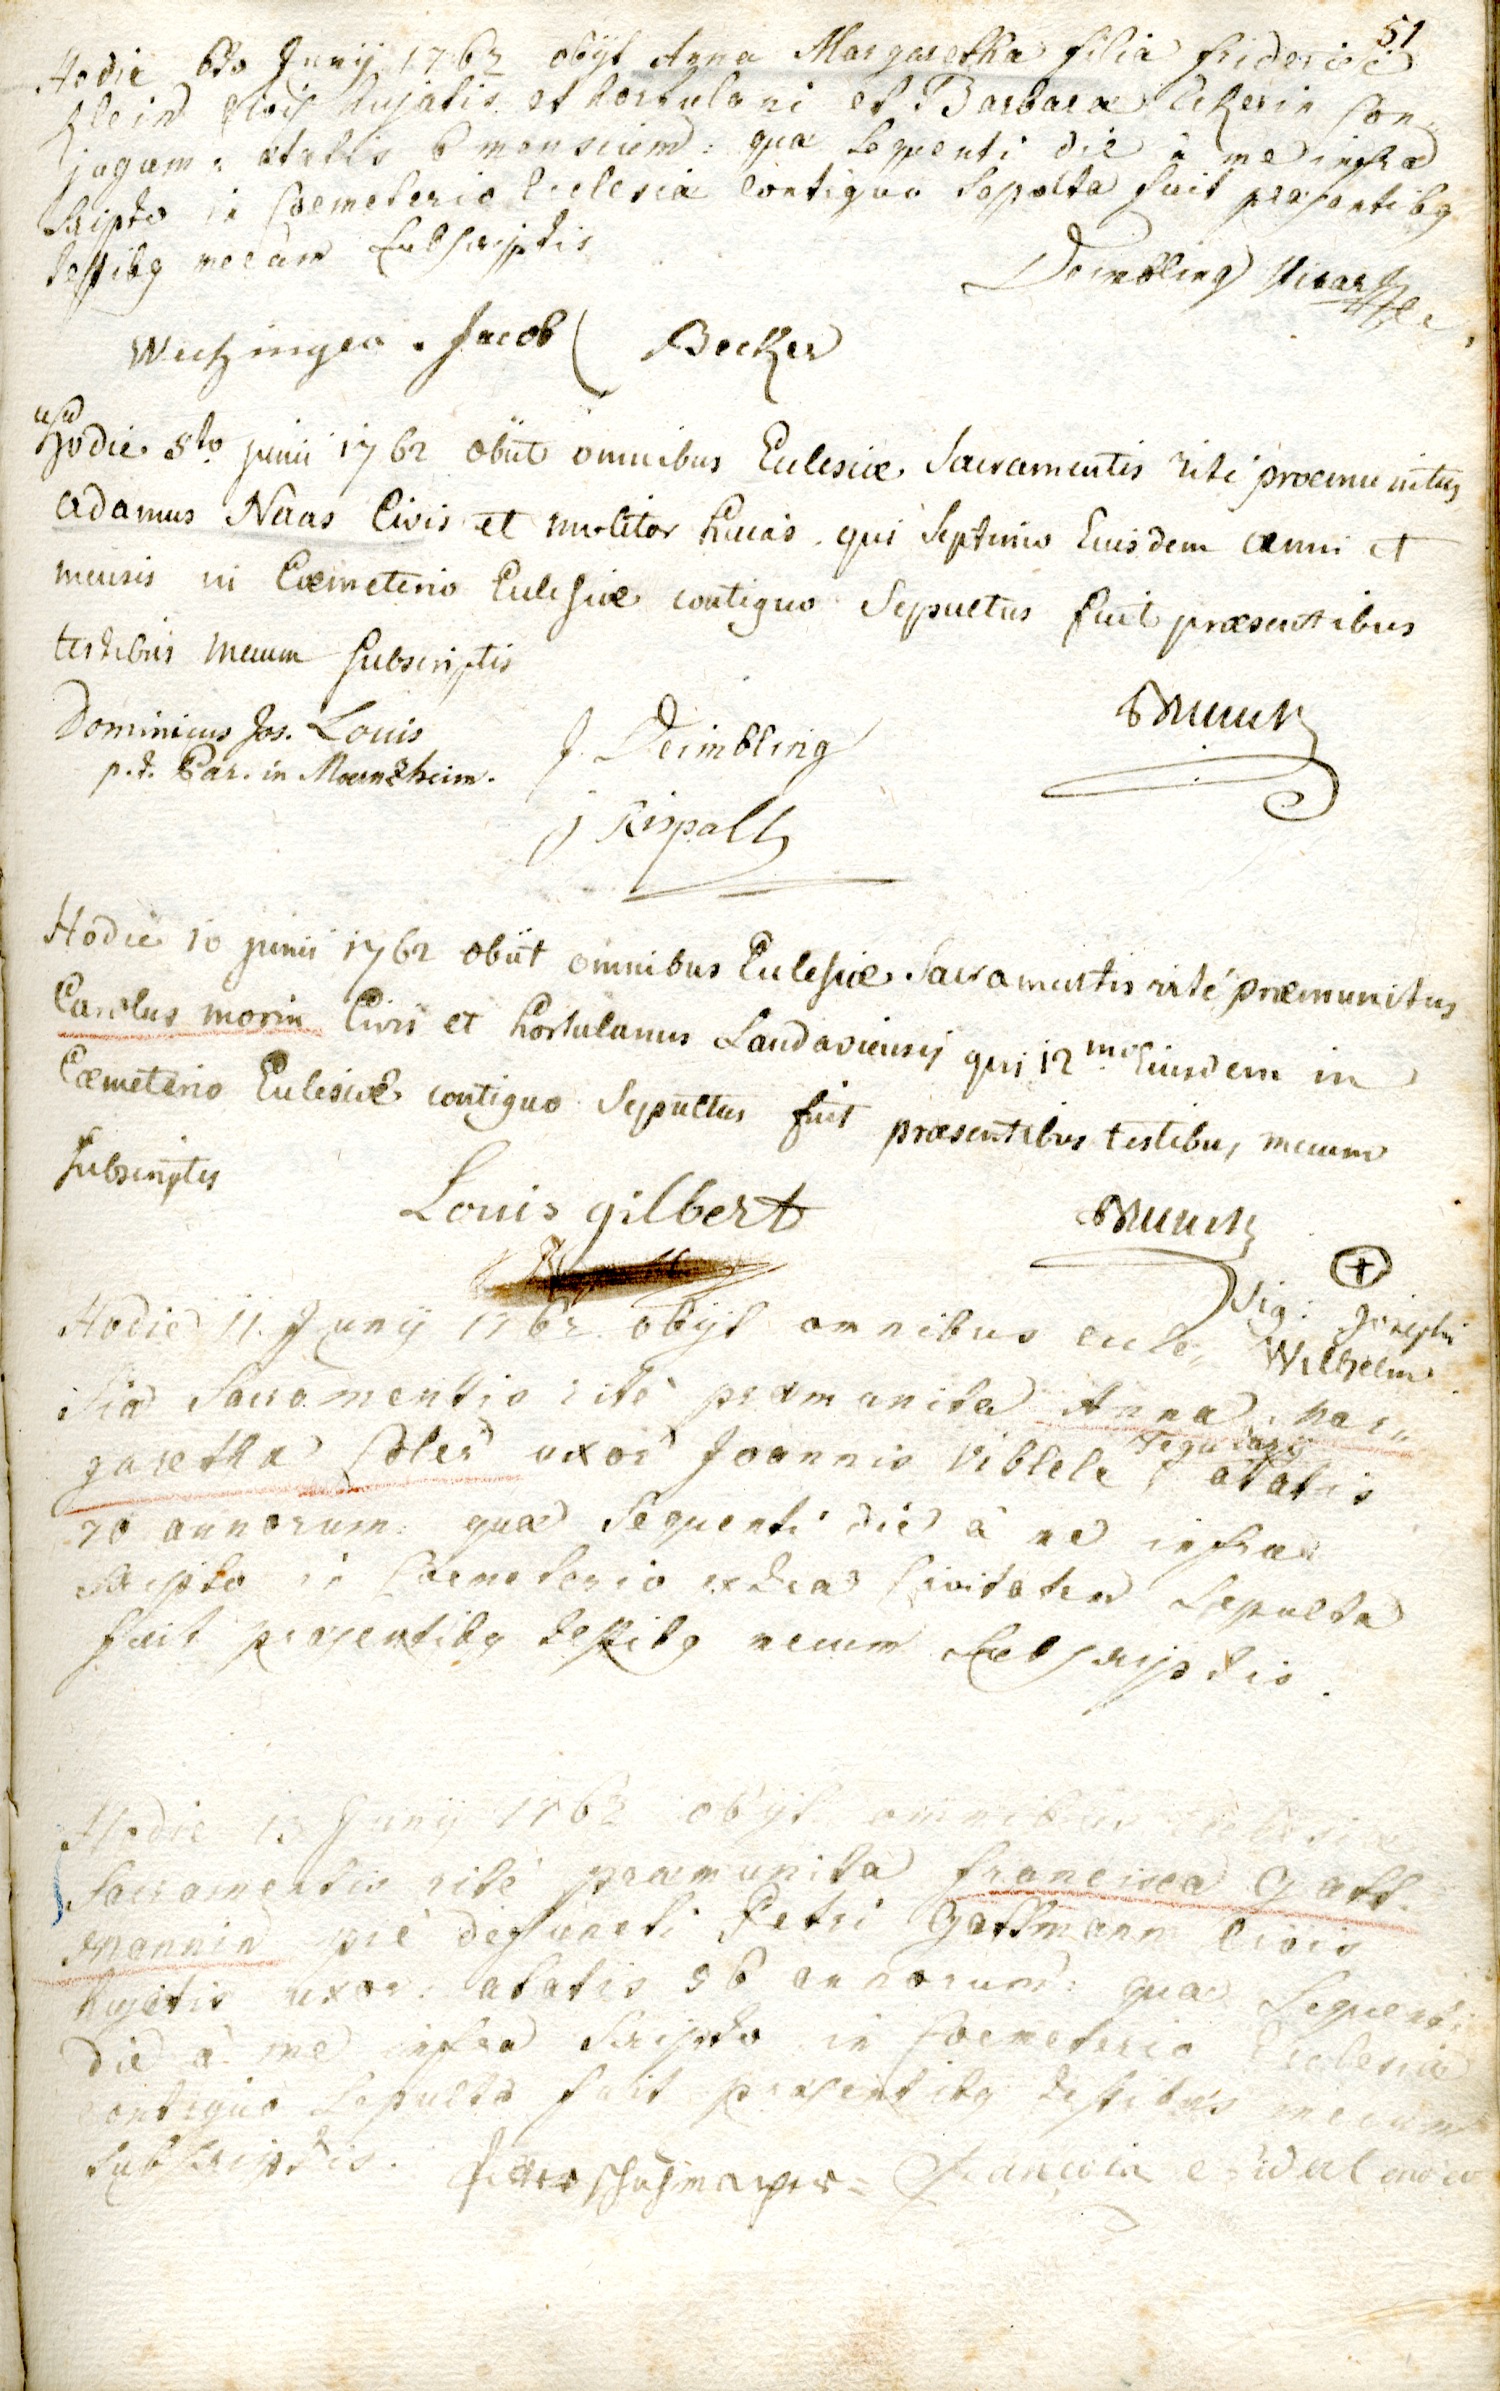 51
Hodie 6to Junij 1762 obijt Anna Margaretha filia friderici
Klein Civis hujatis et hortulani et Barbara Ekerin Con-
jugum: ætatis 6 mensium: quæ Sequenti die à me infra
Scripto in Coemeterio Ecclesiæ Contiguo Sepulta fuit præsentibq
testibq mecum Subscriptis
Deimbling Vicar
Jacob Becker
Hodie 5to junii 1762 obiit omnibus Eclesiæ Sacramentis rité proemunitus
Adamus Naas Civis et molitor huias qui Septimo Eiusdem anni et
mensis in Cœmeterio Eclesiæ contiguo Sepultus fuit præsentibus
testibus mecum Subscriptis
Dominicus Jos. Louis
p.t. Par. in Moerzheim.
J. Deimbling
Munck
j Rispall
Hodie 10 junii 1762 obiit omnibus Eclesiæ Sacramentis rité præmunitus
Carolus morin Civis et hortulanus Landaviensis qui 12mo Eiusdem in
Cœmeterio Eclesiæ contiguo Sepultus fuit præsentibus testibus mecum
Subscriptis
Louis gilbert
Munck
Sig: Josephi
Wilhelm
Hodie 11. Junij 1762 obijt omnibus eccle„
siæ Sacramentis rité præmunita Anna Mar„
garetha uxor Joannis ætatis
70 annorum: quæ Sequenti die à me infra
Scripto in Coemeterio extra Civitatem Sepulta
fuit præsentibq testibq mecum Subscriptis.
Hodie 13 Junij 1762 obijt omnibus Ecclesiæ
Sacramentis rité præmunita francisca Gatt-
mannin pié defuncti Petri Gattmann Civis
hujatis uxor: ætatis 56 annorum: quæ Sequenti
die à me infra Scripto in Coemeterio Ecclesiæ
contiguo Sepulta fuit præsentibq testibus mecum
Subscriptis.